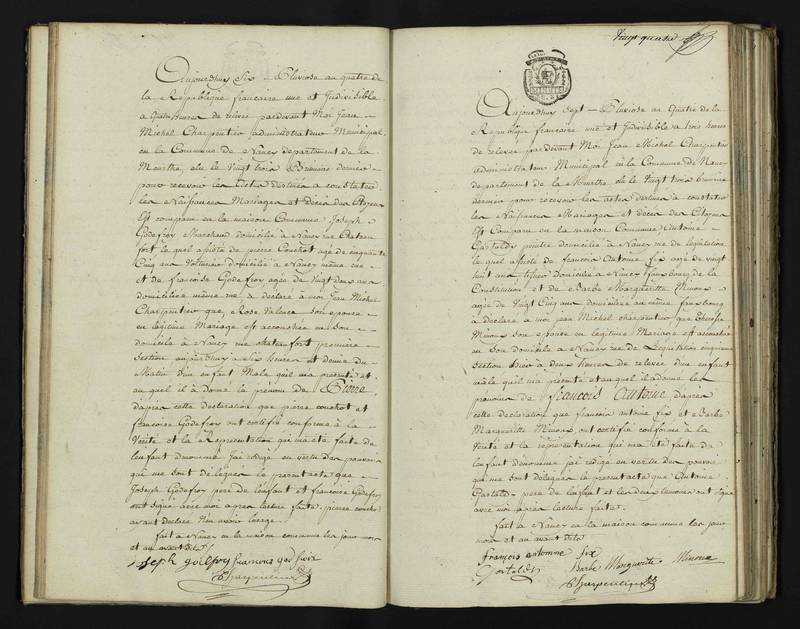 Aujourdhuy Six Pluviose an quatre de
la Republique francaise une et Indivisible
a quatre heures de relevée pardevant Moi Jean
Michel Charpentier administrateur Municipal
en la Commune de Nancy departement de la
Meurthe, elu le Vingt trois Brumaire dernier
pour recevoir les actes destinés a constater
les Naissances Mariages et décès des Citoyens
Est comparu en la maison Commune Joseph
Godefroy Marchand domicilié a Nancy rue Chateau
fort le quel assisté de pierre Couchot agé de cinquante
Cinq ans Voiturier domicilié a Nancy même rue
et de francoise Godefroy agée de Vingt deux ans
domiciliée même rue a déclaré a moi Jean Michel
Charpentier que Rose Valence son epouse
en légitime Mariage est accouchée en son
domicile a Nancy rue chateau fort première
Section aujourdhuy a Six heures et demie du
Matin d'un enfant Male qu'il m'a présenté et
au quel il a donné le prénom de Pierre
d'après cette déclaration que pierre couchot et
francoise Godefroy ont certifié conforme a la
Verité et la Representation qui m'a été faite de
l'enfant denommé J'ai rédigé en vertu des pouvoirs
qui me sont délégués le présent acte que
Joseph Godefroy pere de l'enfant et francoise Godefroy
ont signé avec moi après lecture faite, pierre couchot
ayant declaré Ne savoir
fait a Nancy en la maison commune les jour mois
et an avant dits
joseph godfroy francoise godfroix
Charpentier
Vingt quatre
Aujourdhuy Sept Pluviose an Quatre de la
Republique francaise une et Indivisible a trois heures
de relevée pardevant Moi Jean Michel Charpentier
administrateur Municipal en la Commune de Nancy
departement de la Meurthe elu le Vingt trois brumaire
dernier pour recevoir les actes destinés a constater
les Naissances Mariages et décès des Citoyens
Est Comparu en la maison Commune Antoine
Gastaldy peintre domicilié a Nancy rue de legislation
le quel assisté de francois Antoine fix agé de vingt
huit ans domicilié a Nancy fauxbourg de la
Constitution et de Barbe Marguerithe Minoux
agée de Vingt Cinq ans domiciliée au même fauxbourg
a déclaré a moi Jean Michel charpentier que Therese
Minoux son epouse en legitime Mariage est accouchée
en son domicile a Nancy rue de Legislation cinquieme
Section hier a deux heures de relevée d'un enfant
male qu'il m'a présenté et au quel il a donné les
prenoms de francois Antoine d'après
cette déclaration que francois antoine fix et Barbe
Marguerithe Minoux ont certifié conforme a la
Verité et la representation qui m'a eté faite de
l'enfant dénommé j'ai redigé en vertu des pouvoirs
qui me sont délégués le present acte que Antoine
Gastaldy pere de l'enfant et les deux temoins ont signé
avec moi après lecture faite.
fait a Nancy en la maison commune les jour
mois et an avant dits
françois antoinne fix
Gastaldy Barbe Marguerite Minoux
Charpentier